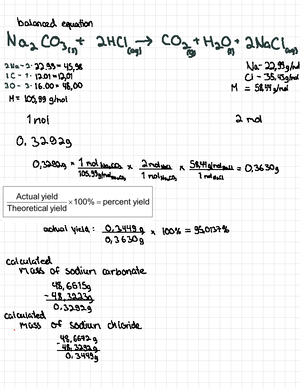 balanced equation
Na2CO3(s) + 2HCl(aq) → CO2(g) + H2O(l) + 2NaCl(aq)
2Na - 2 · 22.99 = 45,98
1C - 1 · 12.01 = 12,01
3O - 3 · 16.00 = 48,00
M = 105,99 g/mol
Na - 22,99 g/mol
Cl - 35,45 g/mol
M = 58,44 g/mol
1 mol
2 mol
0,3292g
0,3292g × 1 mol Na2CO3 / 105,99 g/mol Na2CO3 × 2 mol NaCl / 1 mol Na2CO3 × 58,44 g/mol NaCl / 1 mol NaCl = 0,3630g
Actual yield / Theoretical yield × 100% = percent yield
actual yield: 0,3449g / 0,3630g × 100% = 95,0137%
calculated
mass of sodium carbonate
48,6615g
- 48,3223g
0,3292g
calculated
mass of sodium chloride
48,6672 g
- 48,3292g
0,3449g